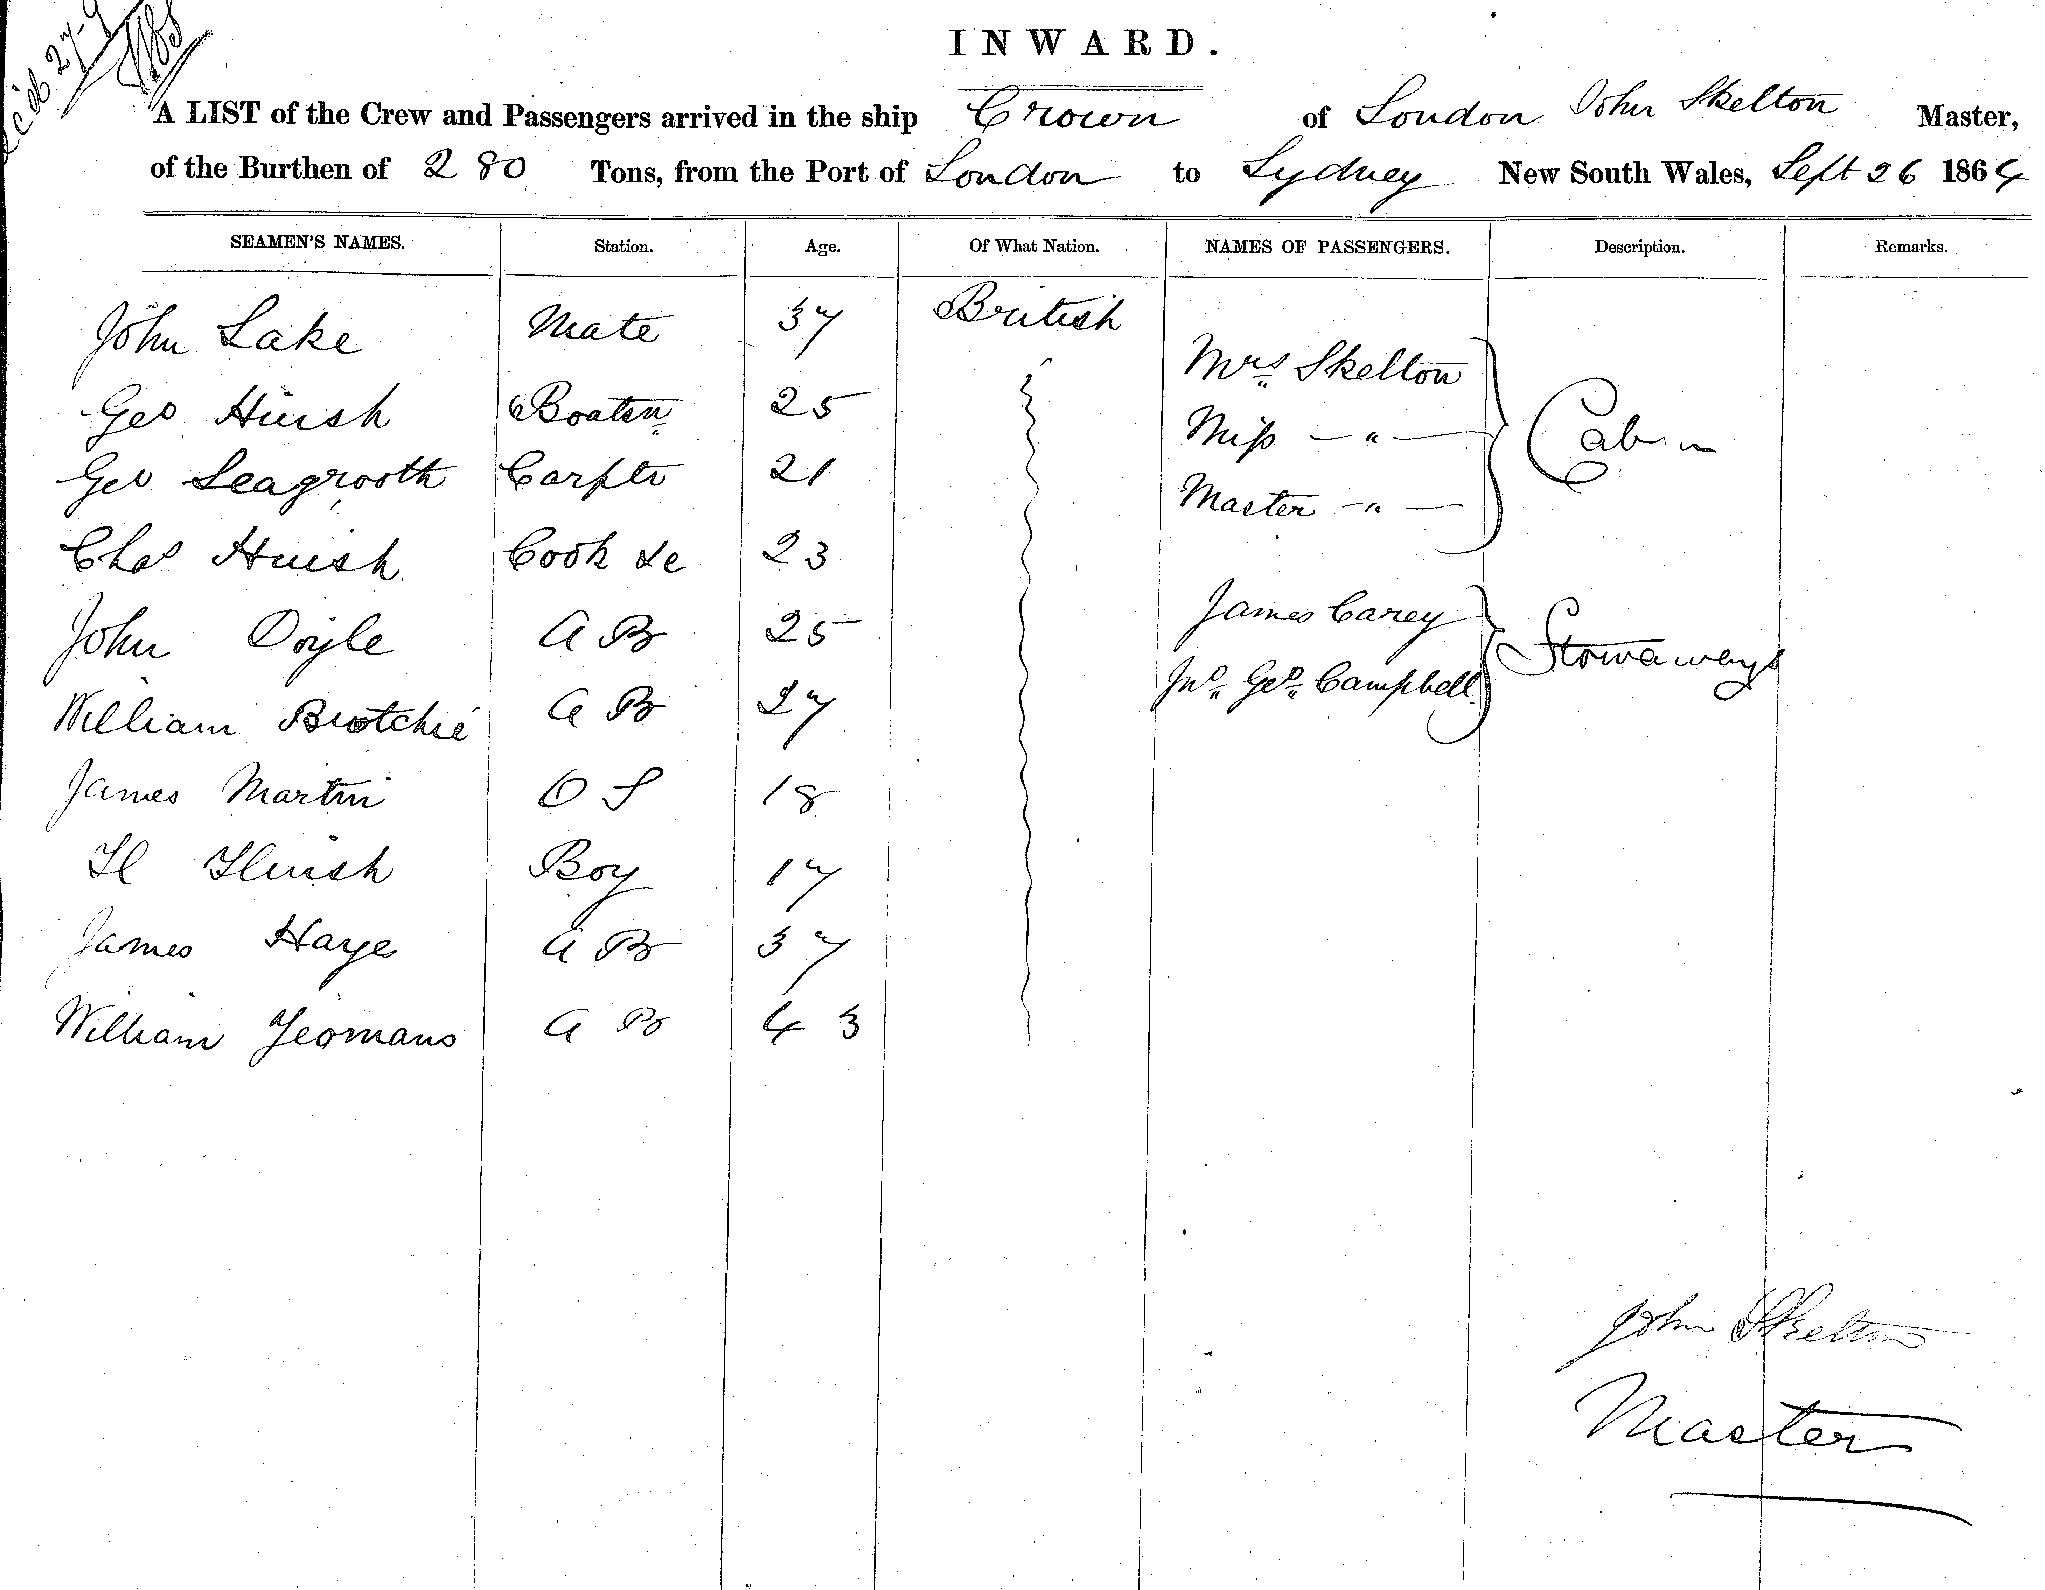 Rc'd 27-9
1185
INWARD.
A LIST of the Crew and Passengers arrived in the ship Crown of London John Skelton Master,
of the Burthen of 280 Tons, from the Port of London to Sydney New South Wales, Sept 26 1864
SEAMEN'S NAMES. Station. Age. Of What Nation. NAMES OF PASSENGERS. Description. Remarks.
John Lake Mate 37 British
Mrs Skelton
Geo Huish Boatsn 25
Miss — " — Cabin
Geo Seagrooth Carptr 21
Master — " —
Chas Huish Cook &c 23
John Doyle A B 25 James Carey
Stowaways
William Brotchie A B 27 Jno. Geo. Campbell
James Martin O S 18
H Huish Boy 17
James Haye A B 37
William Yeomans A B 43
John Skelton
Master